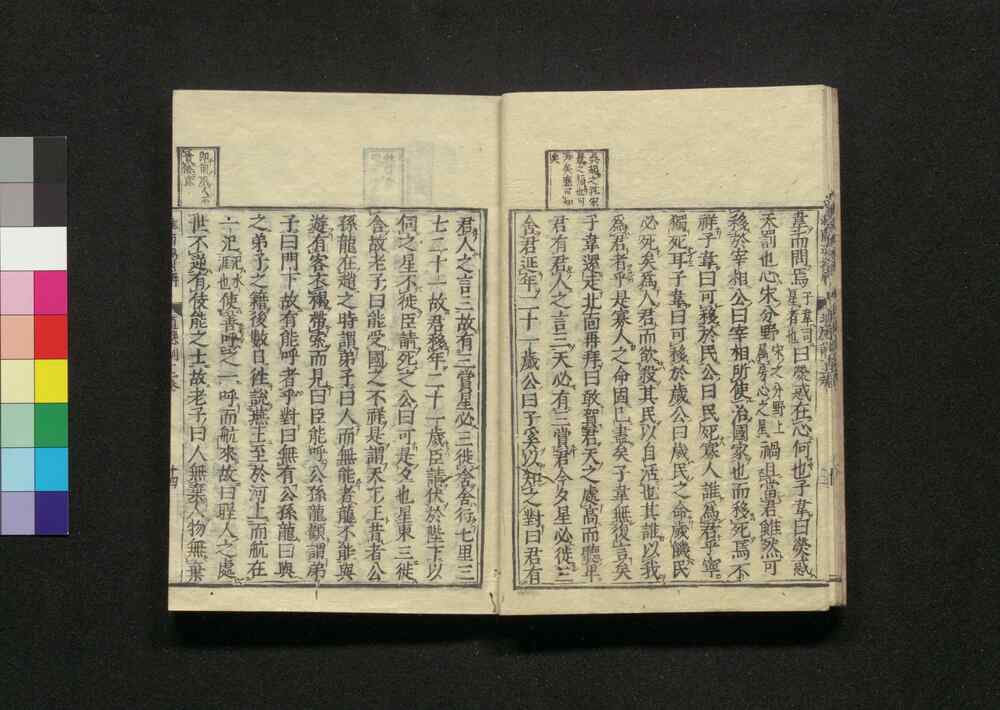 韋而問焉子韋司星者也曰熒惑在心何也子韋曰熒惑
天罰也心宋分野宋之分野上屬房心之星禍且當君雖然可
移於宰相公曰宰相所使治國家也而移死焉不
祥子韋曰可移於民公曰民死寡人誰為君乎寧
獨死耳子韋曰可移於歲公曰歲民之命歲饑民
必死矣為人君而欲殺其民以自活也其誰以我
為君者乎是寡人之命固已盡矣子韋無復言矣
子韋還走北面再拜曰敢賀君天之處高而聽卑
君有君人之言三天必有三賞君今夕星必徙三
舍君延年二十一歲公曰子奚以知之對曰君有
君人之言三故有三賞星必三徙舍舍行七里三
七二十一故君移年二十一歲臣請伏於陛下以
伺之星不徙臣請死之公曰可是夕也星果三徙
舍故老子曰能受國之不祥是謂天下王昔者公
孫龍在趙之時謂弟子曰人而無能者龍不能與
遊有客衣褐帶索而見曰臣能呼公孫龍顧謂弟
子曰門下故有能呼者乎對曰無有公孫龍曰與
之弟子之籍後數日往說燕王至於河上而航在
一汜汜水涯也使善呼之一呼而航來故曰聖人之處
世不逆有伎能之士故老子曰人無棄人物無棄